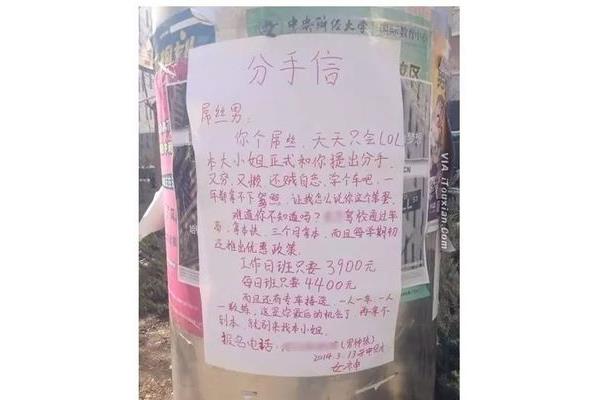 中央财经大学
国际教育中心
分手信
屌丝男:
你个屌丝,天天只会LOL,
本大小姐正式和你提出分手,
又穷,又懒,还贱自恋,学个车吧,一
年都拿不下驾照,让我怎么说你这个笨蛋,
难道你不知道吗?驾校通过率
高,拿本快,三个月拿本,而且每学期初
还推出优惠政策,
工作日班只要3900元
每日班只要4400元
而且还有专车接送,一人一车,一人
一教练,这是你最后的机会了,再拿不
到本,就别来找本小姐.
报名电话:
2014.3.13于中财大
女神
VIA iTouxian.com